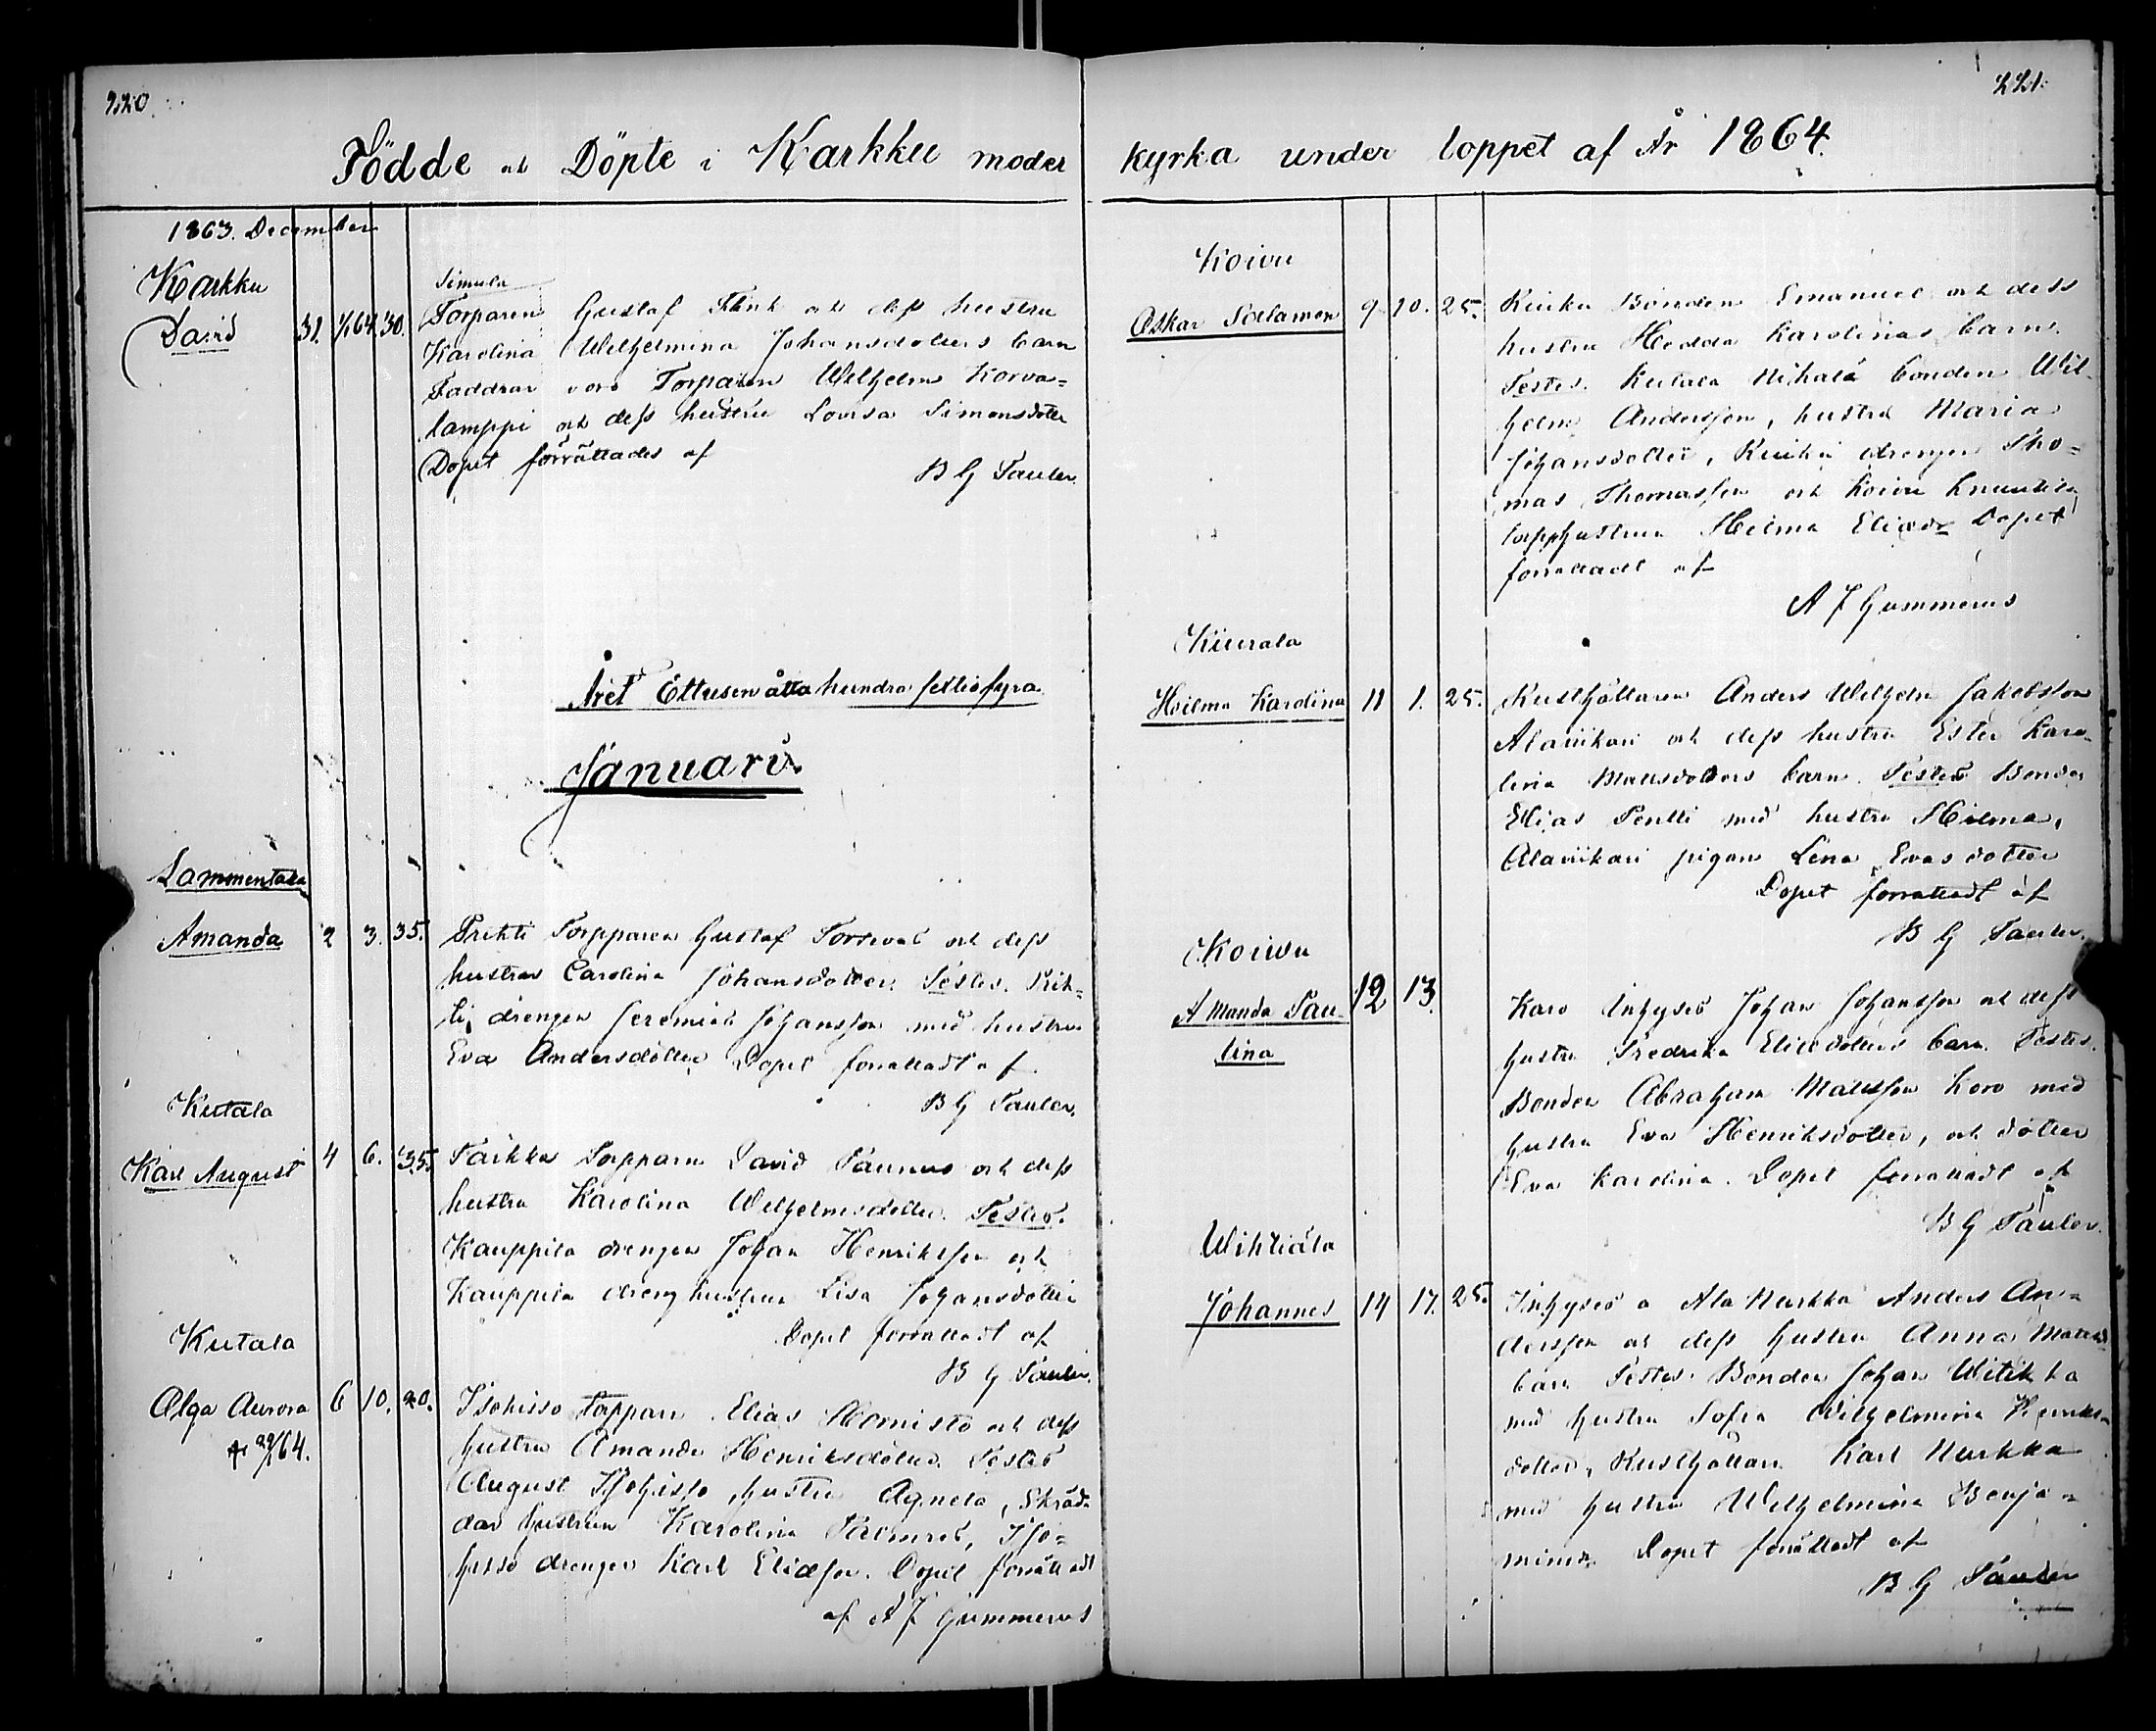 220
Födde och Döpte i Karkku moder
1863. December
Karkku
David 31. 1/1 64. 30.
Simula
Torparen Gustaf Flink och dess hustru
Karolina Wilhelmina Johansdotters barn
Faddrar voro Torparen Wilhelm Korva=
lamppi och dess hustru Lovisa Simonsdotter
Dopet förrättades af
B G Taulér
Året Ettusen åtta hundra sextiofyra
Januari
Lammentaka
Amanda 2 3. 35.
Torpparen Gustaf och dess
hustrus Carolina Johansdotter. Testes.
drengen Jeremias Johansson med hustru
Eva Andersdotter Dopet förrättadt af
B G Taulér.
Kutala
Karl August 4 6. 35.
Torpparn David och dess
hustru Karolina Wilhelmsdotter. Testes.
Kauppila drengen Johan Henriksson och
Kauppila dreng hustrun Lisa Johansdotter
Dopet förrättadt af
B G Taulér.
Kutala
Olga Aurora 6 10. 20.
/64.
Isohisso Torpparn Elias Hornisto och dess
hustru Amanda Henriksdotter. Testes
August Isohisso hustru Agneta, Skräd
dar hustrun Karolina Iso=
hisso drengen Karl Eliasson. Dopet förrättadt
af A J Gummerus
221.
kyrka under loppet af År 1864.
Koivu
Oskar Salamon 9 10. 25.
Kiuka Bonden Emanuel och dess
hustru Hedda Karolinas barn.
Testes. Kutala Nihalä bonden Wil
helm Andersson, hustru Maria
Johansdotter, Kiuka drengen Tho=
mas Thomasson och Koivu Knuutila
torpphustrun Hilma Eliædr Dopet
förrättadt af
A J Gummerus
Kiurala
Hilma Karolina 11 1. 25.
Rusthållaren Anders Wilhelm Jakobsson
Alaviikari och dess hustru Ester Karo
lina Mattsdotters barn. Testes Bonden
Elias Pentti med hustru Hilma,
Alaviikari pigan Lena Evasdotter
Dopet förrättadt af
B G Taulér.
Koivu
Amanda Pau= 12 13.
lina
Karo Inhyses Johan Johansson och dess
hustru Fredrika Eliædotters barn. Testes.
Bonden Abraham Mattsson Koro med
hustru Eva Henriksdotter, och dotter
Eva Karolina. Dopet förrättadt af
B G Taulér.
Wihtiälä
Johannes 14 17. 25.
Inhyses å Ala Nurkka Anders An=
dersson och dess hustru Anna Mattsd
barn Testes. Bonden Johan Witikka
med hustru Sofia Wilhelmina Henriks
dotter, Rusthållarn Karl Nurkka
med hustru Wilhelmina Benja=
minsdr. Dopet förrättadt af
B G Taulér